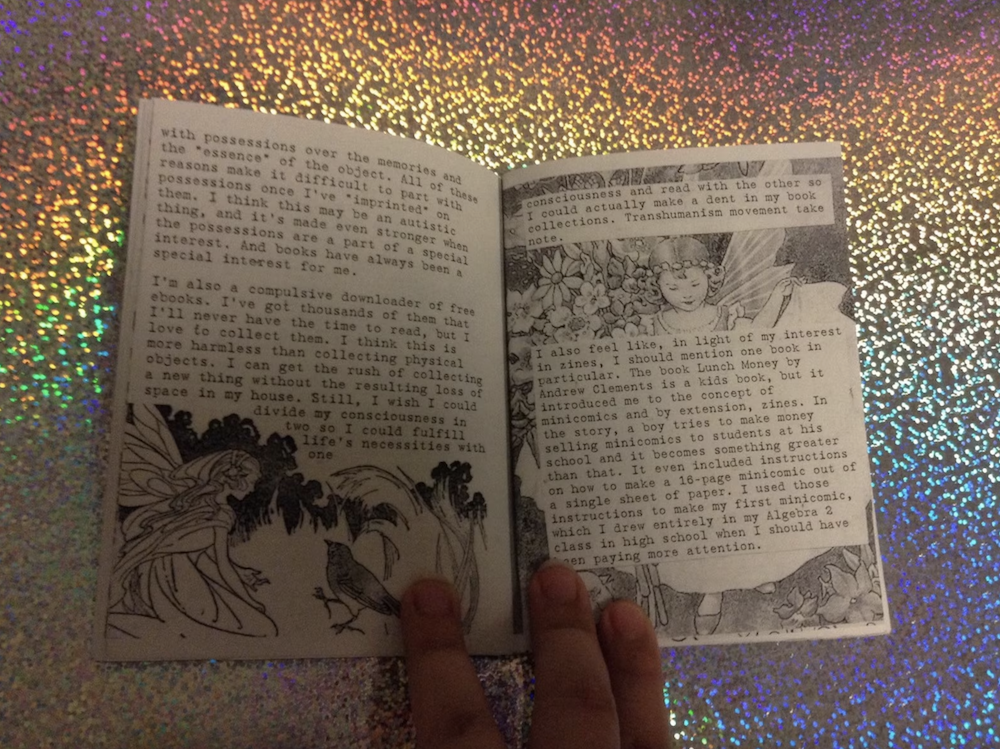 with possessions over the memories and
the "essence" of the object. All of these
reasons make it difficult to part with
possessions once I've "imprinted" on
them. I think this may be an autistic
thing, and it's made even stronger when
the possessions are a part of a special
interest. And books have always been a
special interest for me.
I'm also a compulsive downloader of free
ebooks. I've got thousands of them that
I'll never have the time to read, but I
love to collect them. I think this is
more harmless than collecting physical
objects. I can get the rush of collecting
a new thing without the resulting loss of
space in my house. Still, I wish I could
divide my consciousness in
two so I could fulfill
life's necessities with
one
consciousness and read with the other so
I could actually make a dent in my book
collections. Transhumanism movement take
note.
I also feel like, in light of my interest
in zines, I should mention one book in
particular. The book Lunch Money by
Andrew Clements is a kids book, but it
introduced me to the concept of
minicomics and by extension, zines. In
the story, a boy tries to make money
selling minicomics to students at his
school and it becomes something greater
than that. It even included instructions
on how to make a 16-page minicomic out of
a single sheet of paper. I used those
instructions to make my first minicomic,
which I drew entirely in my Algebra 2
class in high school when I should have
been paying more attention.